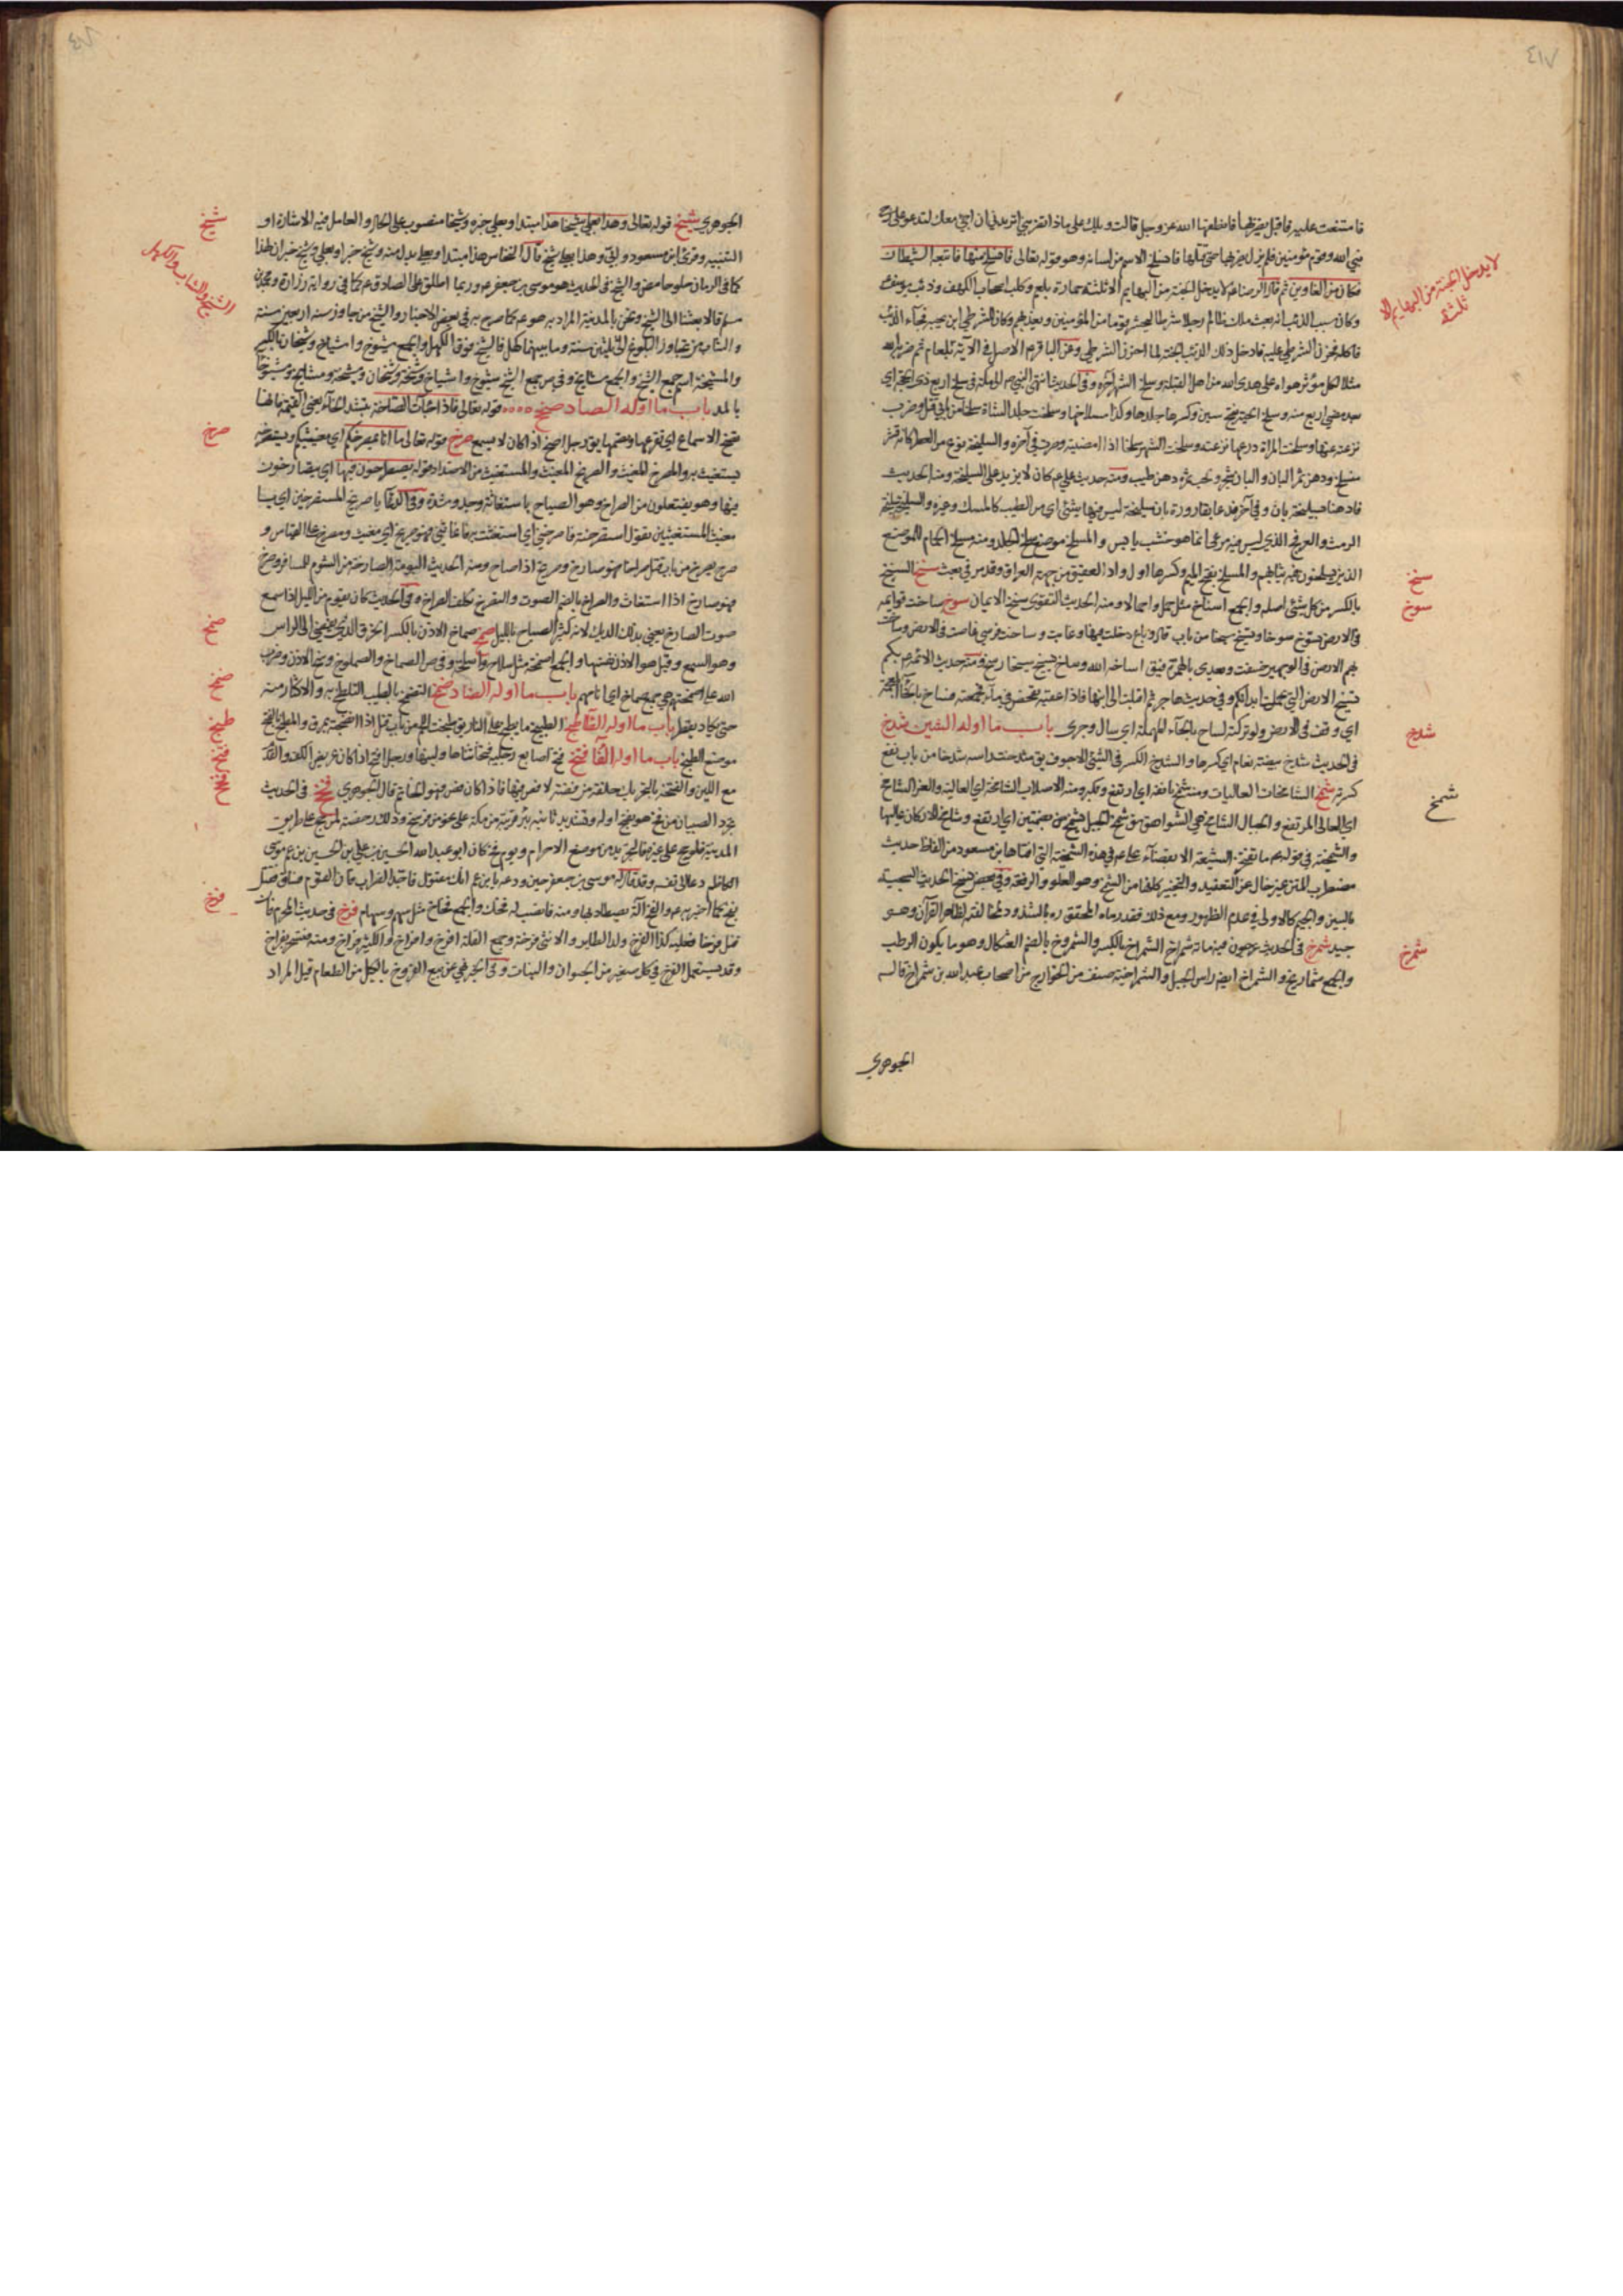 فامتنعت عليه فاقبل يضربها فانطقها الله عز وجل قالت ويلك على ماذا تضربني اتريد ان اجئ معك لتدعو على
نبي الله وقوم مؤمنين فلم يزل يضربها حتى قتلها فانسلخ الاسم من لسانه وهو قوله تعالى فانسلخ منها فاتبعه الشيطان
فكان من الغاوين ثم قال الرضا ع لا يدخل الجنة من البهايم الا ثلثة حمارة بلعم وكلب اصحاب الكهف وذئب
وكان سبب الذئب انه بعث ملك ظالم رجلا شرطيا ليحشر قوما من المؤمنين ويعذبهم وكان للشرطي ابن يحبه فجاء الذئب
فاكله فحزن الشرطي عليه فادخل ذلك الذئب الجنة لما احزن الشرطي وعن الباقر ع الاصل في الاية بلعام ثم ضربه الله
مثلا لكل مؤثر هواه على هدى الله من اهل القبلة وسلخ الشهر آخره وفي الحديث
نزعته عنها وسلخت المراة درعها نزعته وسلخت الشهر سلخا اذا امضيته وصرت في آخره والسليخة نوع من العطر كانه قشر
منسلخ ودهن ثمر البان والبان شجر ولحب ثمره دهن طيب ومنه حديث علي ع كان لا يزيد على السليخة ومنه الحديث
فادهنا بسليخة بان وفي آخر فدعا بقارورة بان سليخة ليس فيها شئ اي من الطيب كالمسك وغيره والسليخة سليخة
الرمث والعرفج الذي ليس فيه مرعى انما هو خشب يابس والمسلخ موضع سلخ الجلد ومنه مسلخ الحمام للموضع
الذي يسلخون فيه ثيابهم والمسلخ بفتح الميم وكسرها اول واد العقيق من جهة العراق وقد مر في بعث سنخ السنخ
بالكسر من كل شئ اصله والجمع اسناخ مثل حمل واحمال ومنه الحديث التقوى سنخ الايمان سوخ ساخت قوائمه
في الارض تسوخ سوخا وتسيخ سيخا من باب قال وباع دخلت فيها وغابت وساخت فرسي غاصت في الارض وساخت
بهم الارض في الوجهين خسفت ويعدى بالهمزة فيق اساخه الله
اي وقف في الارض ولو تركته لساح بالحاء المهملة اي سال وجرى باب ما اوله الشين شدخ
في الحديث شدخ بيضة نعام اي كسرها والشدخ الكسر في الشئ الاجوف يق شدخت راسه شدخا من باب نفع
كسرته شمخ الشامخات العاليات ومنه شمخ بانفه اي ارتفع وتكبر ومنه الاصلاب الشامخة اي العالية والعز الشامخ
اي العالي المرتفع والجبال الشامخة هي الشواهق
والشمخية في قولهم ما تفخر الشيعة الا بقضاء علي ع في هذه الشمخية التي افتاها ابن مسعود من الفاظ حديث
مضطرب المتن غير خال عن التعقيد والتغيير كانها من الشمخ وهو العلو والرفعة وفي بعض نسخ الحديث السجية
بالسين والجيم كالاولى في عدم الظهور ومع ذلك فقد رماه المحقق ره بالشذوذ لمخالفته لظاهر القرآن وهو
جيد شمرخ في الحديث عرجون فيه مائة شمراخ الشمراخ بالكسر والشمروخ بالضم العثكال وهو ما يكون الرطب
والجمع شماريخ والشمراخ ايضا راس الجبل والشمراخية صنف من الخوارج من اصحاب عبد الله بن شمراخ قاله
الجوهري
لا يدخل الجنة من البهايم الا
ثلثة
سنخ
سوخ
شدخ
شمخ
شمرخ
الجوهري شيخ قوله تعالى وهذا بعلي شيخا هذا مبتدا وبعلي خبره وشيخا منصوب على الحال والعامل فيه الاشارة او
التنبيه وقرئ ابن مسعود وابي وهذا بعلي شيخ قال النحاس هذا مبتدا وبعلي بدل منه وشيخ خبر او بعلي وشيخ خبران لهذا
كما في الرمان حلو حامض والشيخ في الحديث هو موسى بن جعفر ع وربما اطلق على الصادق ع كما في رواية زرارة ومحمد بن
مسلم قالا بعثنا الى الشيخ ونحن بالمدينة المراد به هو ع كما صرح به في بعض الاخبار والشيخ من جاوز سنه اربعين سنة
والشاب من تجاوز البلوغ الى ثلثين سنة وما بينهما كهل فالشيخ فوق الكهل والجمع شيوخ واشياخ وشيخان بالكسر
والمشيخة اسم جمع الشيخ والجمع مشايخ وفي ص جمع الشيخ شيوخ واشياخ وشيخة وشيخان ومشيخة ومشايخ ومشيوخا
بالمد باب ما اوله الصاد صخخ قوله تعالى فاذا جاءت الصاخة بتشديد الخاء يعني القيمة فانها
تصخ الاسماع اي تقرعها وتصمها يق رجل اصخ اذا كان لا يسمع صرخ قوله تعالى ما انا بمصرخكم اي بمغيثكم ويستصرخه
يستغيث به والمصرخ المغيث والصريخ المغيث والمستغيث من الاضداد قوله يصطرخون فيها اي يتصارخون
فيها وهو يفتعلون من الصراخ وهو الصياح باستغاثة وجد وشدة وفي الدعاء يا صريخ المستصرخين اي يا
مغيث المستغيثين تقول استصرخته فاصرخني اي استغثت به فاغاثني فهو صريخ اي مغيث ومصرخ على القياس و
صرخ يصرخ من باب قتل صراخا فهو صارخ وصريخ اذا صاح ومنه الحديث البومة الصارخة من الشوم للمسافر وصرخ
فهو صارخ اذا استغاث والصراخ بالضم الصوت والتصرخ تكلف الصراخ وفي الحديث كان يقوم من الليل اذا سمع
صوت الصارخ يعني بذلك الديك لانه كثير الصياح بالليل صمخ صماخ الاذن بالكسر الخرق الذي يفضي الى الراس
وهو السمع وقيل هو الاذن نفسها والجمع اصمخة مثل سلاح واسلحة وفي ص الصماخ والصملوخ وسخ الاذن وضرب
الله على اصمختهم هي جمع صماخ اي انامهم باب ما اوله الضاد ضمخ التضمخ بالطيب التلطخ به والاكثار منه
حتى يكاد يقطر باب ما اوله الطاء طبخ الطبيخ ما يطبخ على النار يق طبخت اللحم من باب قتل اذا انضجته بمرق والمطبخ بالفتح
موضع الطبخ باب ما اوله الفاء فتخ فتخ اصابع رجليه فتخا ثناها ولينها ورجل افتخ اذا كان عريض الكف والقدم
مع اللين والفتخة بالتحريك حلقة من فضة لا فص فيها فاذا كان فص فهو الخاتم قاله الجوهري فخخ في الحديث
يجرد الصبيان من فخ هو بفتح اوله وتشديد ثانيه بئر قريبة من مكة على نحو من فرسخ وذلك رخصة لمن حج على طريق
المدينة فلو حج على غيرها فالتجريد من موضع الاحرام ويوم فخ كان ابو عبد الله الحسين بن علي بن الحسين بن عم موسى
الكاظم دعا الى نفسه وقد قال له موسى بن جعفر حين ودعه يا بن عم انك مقتول فاجد الضراب فان القوم فساق فقتل
بفخ كما اخبر به ع والفخ آلة يصطاد بها ومنه فانصب له فخك والجمع فخاخ مثل سهم وسهام فرخ في حديث المحرم فان
قتل فرخا فعليه كذا الفرخ ولد الطاير والانثى فرخة وجمع القلة افرخ وافراخ والكثير فراخ
وقد يستعمل الفرخ في كل صغير من الحيوان والنبات وفي الخبر نهي عن بيع الفروخ بالكيل من الطعام قيل المراد
شيخ
الشيخ والشاب والكهل
صرخ
صمخ
ضمخ
طبخ
فتخ
فخخ
فرخ